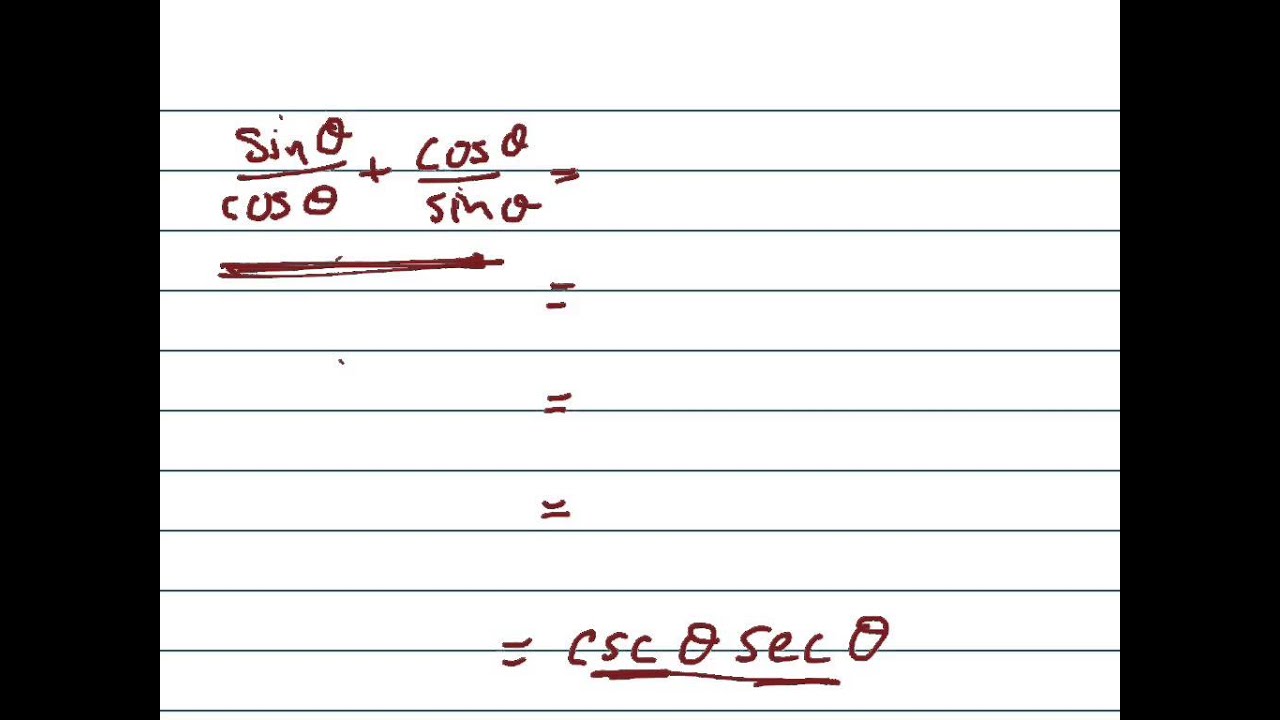 sin θ / cos θ + cos θ / sin θ =
=
=
=
= csc θ sec θ